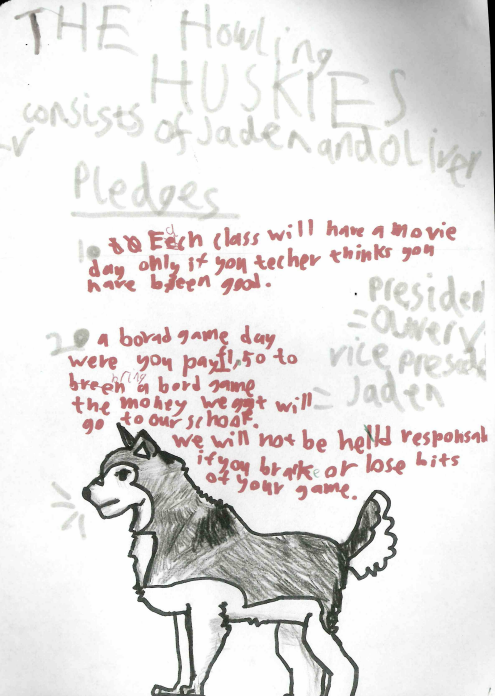 THE Howling
HUSKIES
consists of Jaden and Oliver
Pledges
1. Each class will have a movie
day only if you techer thinks you
have been good.
2. a borad game day
were you pay £1,50 to
breen bring a bord game
the money we get will
go to our school.
we will not be held responsab
if you brake or lose bits
of your game.
presiden
= Oliver
vice presid
= Jaden